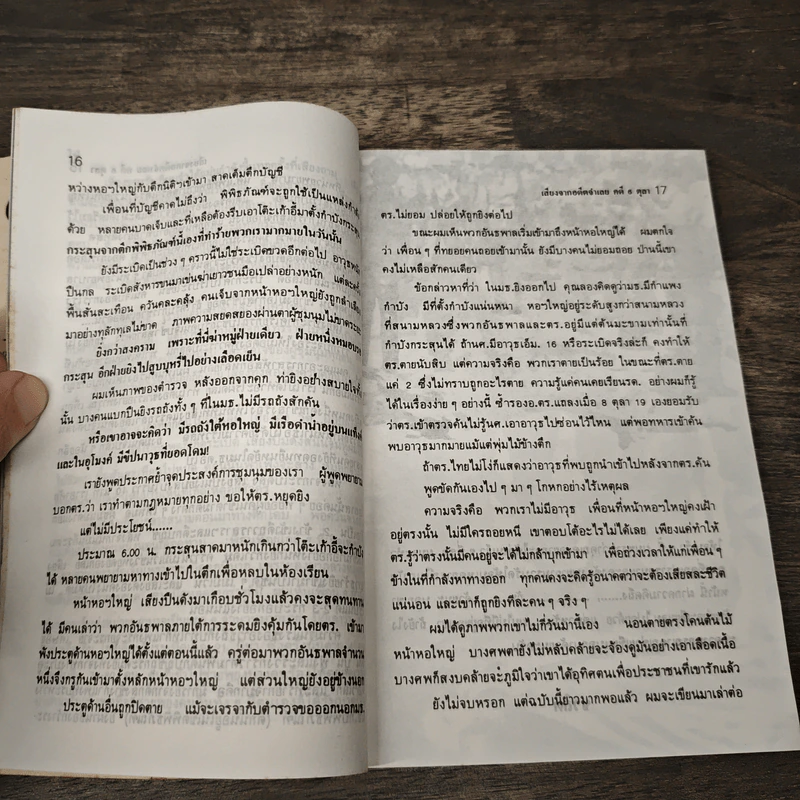 16
หว่างหอฯใหญ่กับตึกนิติฯเข้ามา สาดเต็มตึกบัญชี
เพื่อนที่บัญชีคาดไม่ถึงว่า พิพิธภัณฑ์จะถูกใช้เป็นแหล่งกำลัง
ด้วย หลายคนบาดเจ็บและที่เหลือต้องรีบเอาโต๊ะเก้าอี้มาตั้งกำบังกระสุน
กระสุนจากตึกพิพิธภัณฑ์นี้เองที่ทำร้ายพวกเรามากมายในวันนั้น
ยังมีระเบิดเป็นช่วง ๆ คราวนี้ไม่ใช่ระเบิดขวดอีกต่อไป อาวุธหนัก
ปืนกล ระเบิดสังหารขนมาเข่นฆ่าเยาวชนมือเปล่าอย่างหนัก แต่ละครั้ง
พื้นสั่นสะเทือน ควันคละคลุ้ง คนเจ็บจากหน้าหอฯใหญ่ยังถูกลำเลียง
มาอย่างทุลักทุเลไม่ขาด ภาพความสยดสยองผ่านตาผู้ชุมนุมไม่ขาดระยะ
ยิ่งกว่าสงคราม เพราะที่นี่ฆ่าหมู่ฝ่ายเดียว ฝ่ายหนึ่งหมอบหลบ
กระสุน อีกฝ่ายยิงไปสูบบุหรี่ไปอย่างเลือดเย็น
ผมเห็นภาพของตำรวจ หลังออกจากคุก ท่ายิงอย่างสบายใจทั้ง
นั้น บางคนแบกปืนยิงรถถังทั้ง ๆ ที่ในมธ.ไม่มีรถถังสักคัน
หรือเขาอาจจะคิดว่า มีรถถังใต้หอใหญ่ มีเรือดำน้ำอยู่บนแท็งก์
และในอุโมงค์ มีขีปนาวุธที่ยอดโดม!
เรายังพูดประกาศย้ำจุดประสงค์การชุมนุมของเรา ผู้พูดพยายาม
บอกตร.ว่า เราทำตามกฎหมายทุกอย่าง ขอให้ตร.หยุดยิง
แต่ไม่มีประโยชน์......
ประมาณ 6.00 น. กระสุนสาดมาหนักเกินกว่าโต๊ะเก้าอี้จะกำบัง
ได้ หลายคนพยายามหาทางเข้าไปในตึกเพื่อหลบในห้องเรียน
หน้าหอฯใหญ่ เสียงปืนดังมาเกือบชั่วโมงแล้วคงจะสุดทนทาน
ได้ มีคนเล่าว่า พวกอันธพาลภายใต้การระดมยิงคุ้มกันโดยตร. เข้ามา
พังประตูด้านหอฯใหญ่ได้ตั้งแต่ตอนนี้แล้ว ครู่ต่อมาพวกอันธพาลจำนวน
หนึ่งจึงกรูกันเข้ามาตั้งหลักหน้าหอฯใหญ่ แต่ส่วนใหญ่ยังอยู่ข้างนอก
ประตูด้านอื่นถูกปิดตาย แม้จะเจรจากับตำรวจขอออกนอกมธ.
เสียงจากอดีตจำเลย คดี 6 ตุลา 17
ตร.ไม่ยอม ปล่อยให้ถูกยิงต่อไป
ขณะผมเห็นพวกอันธพาลเริ่มเข้ามาถึงหน้าหอใหญ่ได้ ผมตกใจ
ว่า เพื่อน ๆ ที่ทยอยคนถอยเข้ามานั้น ยังมีบางคนไม่ยอมถอย ป่านนี้เขา
คงไม่เหลือสักคนเดียว
ข้อกล่าวหาที่ว่า ในมธ.ยิงออกไป คุณลองคิดดูว่ามธ.มีกำแพง
กำบัง มีที่ตั้งกำบังแน่นหนา หอฯใหญ่อยู่ระดับสูงกว่าสนามหลวง
ที่สนามหลวงซึ่งพวกอันธพาลและตร.อยู่มีแต่ต้นมะขามเท่านั้นที่
กำบังกระสุนได้ ถ้านศ.มีอาวุธเอ็ม. 16 หรือระเบิดจริงล่ะก็ คงทำให้
ตร.ตายนับสิบ แต่ความจริงคือ พวกเราตายเป็นร้อย ในขณะที่ตร.ตาย
แค่ 2 ซึ่งไม่ทราบถูกอะไรตาย ความรู้แค่คนเคยเรียนรด. อย่างผมก็รู้
ได้ในเรื่องง่าย ๆ อย่างนี้ ซ้ำรองอ.ตร.แถลงเมื่อ 8 ตุลา 19 เองยอมรับ
ว่าตร.เข้าตรวจค้นไม่รู้นศ.เอาอาวุธไปซ่อนไว้ไหน แต่พอทหารเข้าค้น
พบอาวุธมากมายแม้แต่พุ่มไม้ข้างตึก
ถ้าตร.ไทยไม่โง่ก็แสดงว่าอาวุธที่พบถูกนำเข้าไปหลังจากตร.ค้น
พูดขัดกันเองไป ๆ มา ๆ โกหกอย่างไร้เหตุผล
ความจริงคือ พวกเราไม่มีอาวุธ เพื่อนที่หน้าหอฯใหญ่คงเฝ้า
อยู่ตรงนั้น ไม่มีใครถอยหนี เขาตอบโต้อะไรไม่ได้เลย เพียงแค่ทำให้
ตร.รู้ว่าตรงนั้นมีคนอยู่จะได้ไม่กล้าบุกเข้ามา เพื่อถ่วงเวลาให้แก่เพื่อน ๆ
ข้างในที่กำลังหาทางออก ทุกคนคงจะคิดรู้อนาคตว่าจะต้องเสียสละชีวิต
แน่นอน และเขาก็ถูกยิงทีละคน ๆ จริง ๆ
ผมได้ดูภาพพวกเขาไม่กี่วันมานี้เอง นอนตายตรงโคนต้นไม้
หน้าหอใหญ่ บางศพตายังไม่หลับคล้ายจะจ้องดูมันอย่างเอาเลือดเนื้อ
บางศพก็สงบคล้ายจะภูมิใจว่าเขาได้อุทิศตนเพื่อประชาชนที่เขารักแล้ว
ยังไม่จบหรอก แต่ฉบับนี้ยาวมากพอแล้ว ผมจะเขียนมาเล่าต่อ